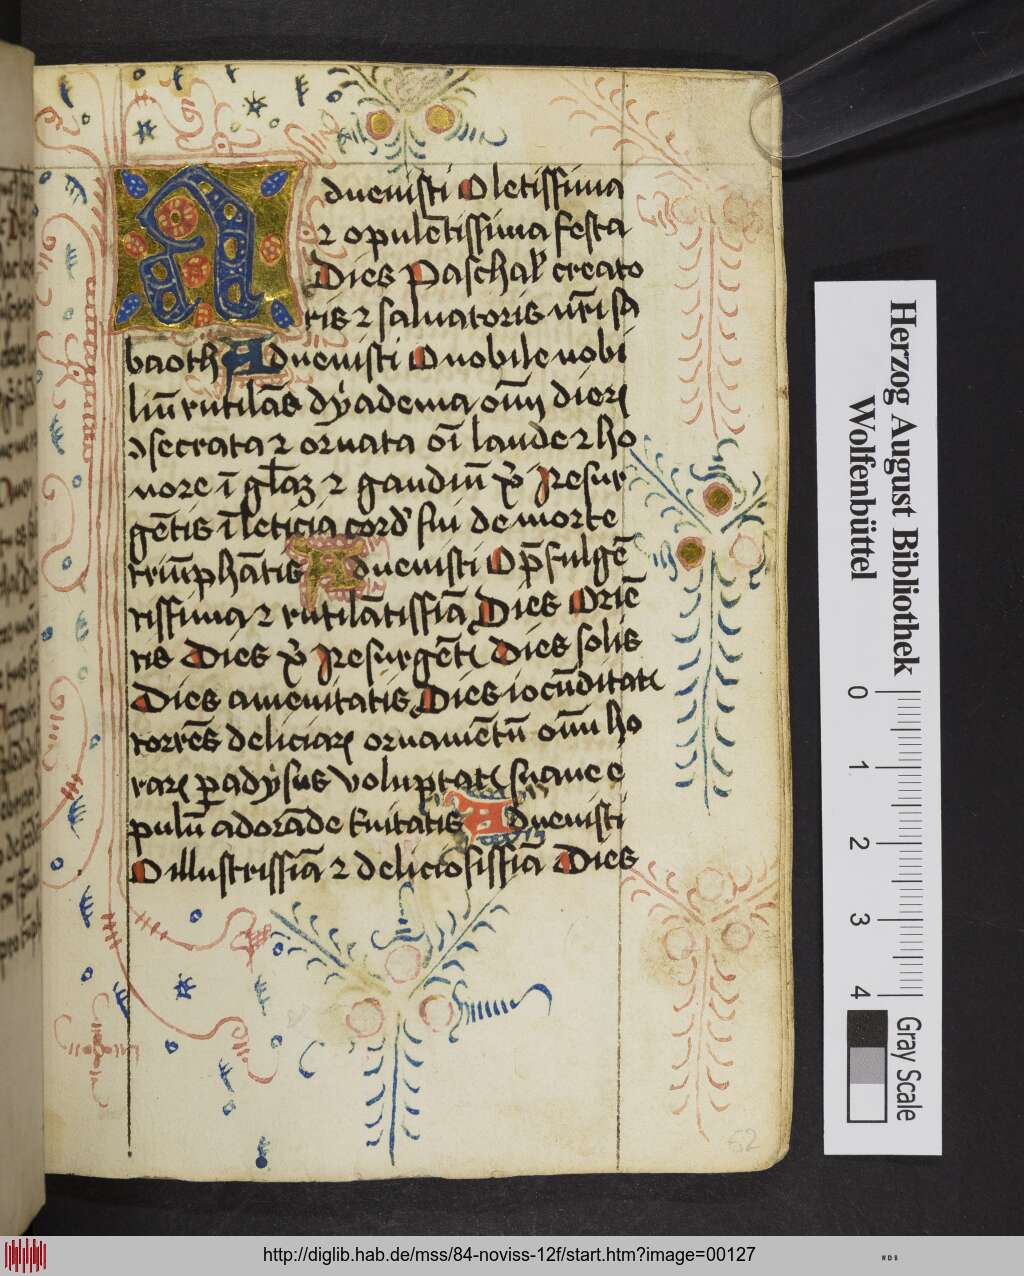 Advenisti O letissima
⁊ opulētissima festa
Dies Paschal' creato
ris ⁊ salvatoris nr̄i sa
baoth Advenisti O nobile nobi
liū rutilās dyadema om̄ dierꝝ
ↄsecrata ⁊ ornata oī laude ⁊ ho
nore ī gl̄a ⁊ gaudiū xp̄i Resur
gētis ī leticia cord' sui de morte
triūphātis Advenisti O p̄fulgē
tissima ⁊ rutilātissīa Dies Oriē
tis Dies xp̄i Resurgēt' Dies solis
Dies amenitatis Dies iocūditat'
torrēs deliciarꝝ ornamētū om̄ ho
rarꝝ ꝑadysus voluptat' suave e
pulū adorāde t'nitatis Advenisti
O illustrissīa ⁊ deliciosissīa Dies
62
Herzog August Bibliothek
Wolfenbüttel
0 1 2 3 4
Gray Scale
http://diglib.hab.de/mss/84-noviss-12f/start.htm?image=00127